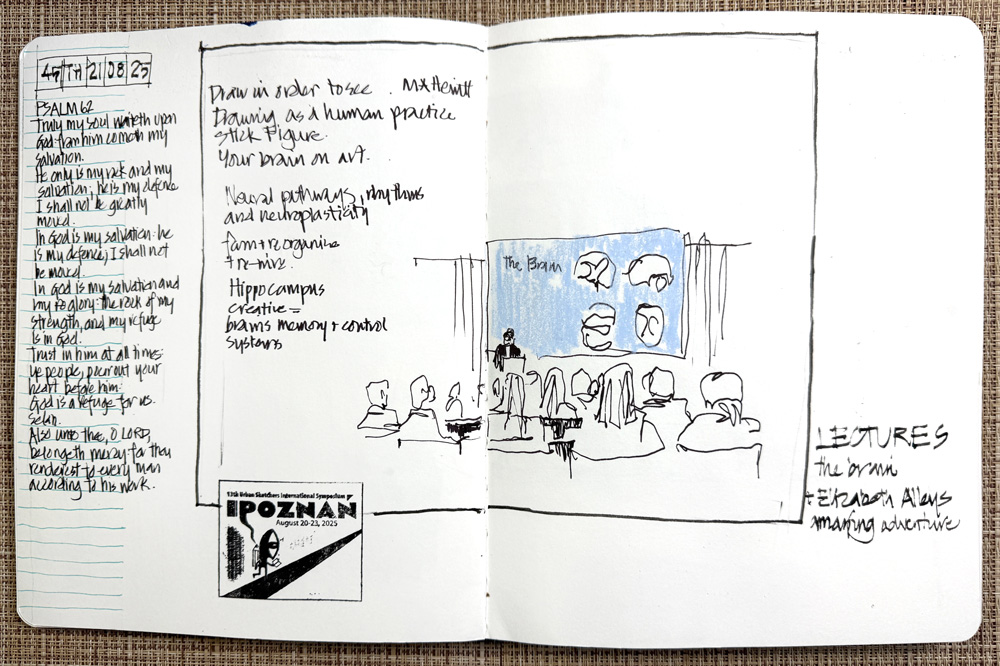 45 TH 21 08 25
PSALM 62
Truly my soul waiteth upon
God: from him cometh my
salvation.
He only is my rock and my
salvation; he is my defence
I shall not be greatly
moved.
In God is my salvation: he
is my defence; I shall not
be moved.
In God is my salvation and
my glory: the rock of my
strength, and my refuge
is in God.
Trust in him at all times:
ye people, pour out your
heart before him:
God is a refuge for us.
Selah.
Also unto thee, O LORD,
belongeth mercy: for thou
renderest to every man
according to his work.
Draw in order to see.
Drawing as a human practice
stick Figure.
Your brain on art.
Neural pathways, rhythms
and neuroplasticity
form + reorganise
+ re-wire.
Hippocampus
creative =
brains memory + control
systems
The Brain
13th Urban Sketchers International Symposium
POZNAN
August 20-23, 2025
LECTURES
the brain
+ Elizabeth Alleys
amazing adventure